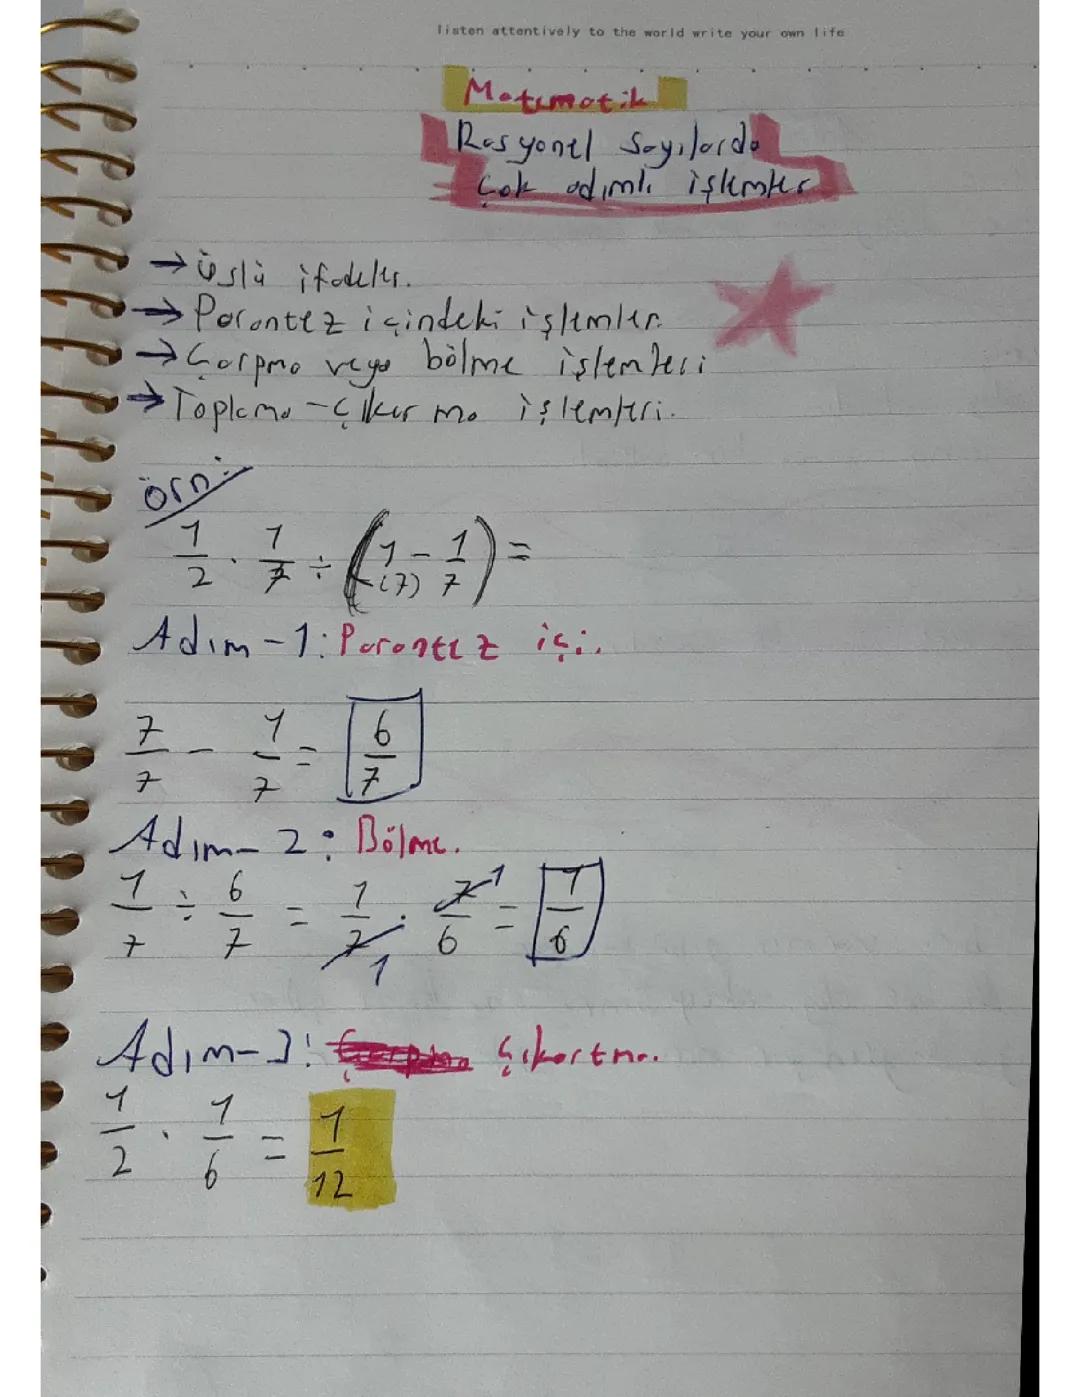 listen attentively to the world write your own life
Matematik
Rasyonel Sayılarda
Çok adımlı işlemler
→ üslü ifadeler.
→ Parantez içindeki işlemler.
→ Çarpma veya bölme işlemleri
→ Toplama - Çıkarma işlemleri.
örn:
1/2 · 1/7 ÷ (1/(7) - 1/7) =
Adım-1: Parantez içi.
7/7 - 1/7 = 6/7
Adım-2: Bölme.
1/7 ÷ 6/7 = 1/7 1 · 7/6 1 = 1/6
Adım-3: Çıkartma.
1/2 · 1/6 = 1/12